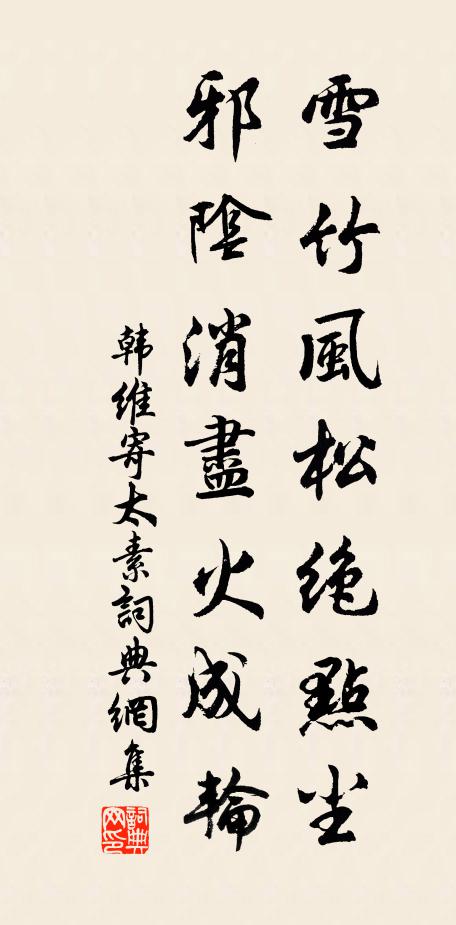 雪竹風松绝點尘
邪陰消盡火成輪
韩維寄太素詞典網集
詞典網印